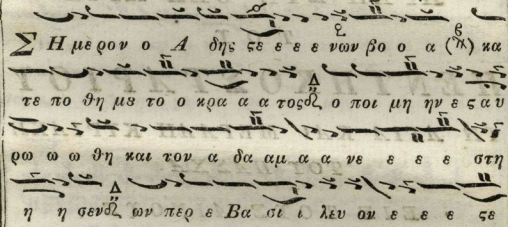 Σ Η μερον ο Α δης ςε ε ε ε νων βο ο α (π) κα
τε πο θη με το ο κρα α α τος Δ ο ποι μη ην ε ςαυ
ρω ω ω θη και τον α δα αμ α α νε ε ε ε στη
η η σεν Δ ων περ ε Βα σι ι λευ ον ε ε ε ςε